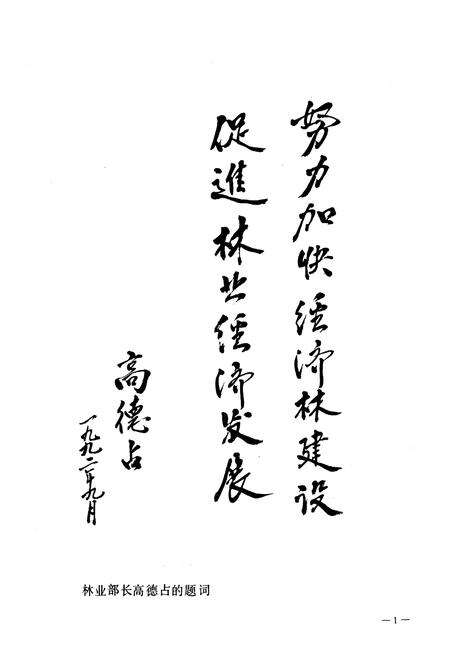 努力加快经济林建设
促進林业经济发展
高德占
一九九二年九月
林业部长高德占的题词
—1—